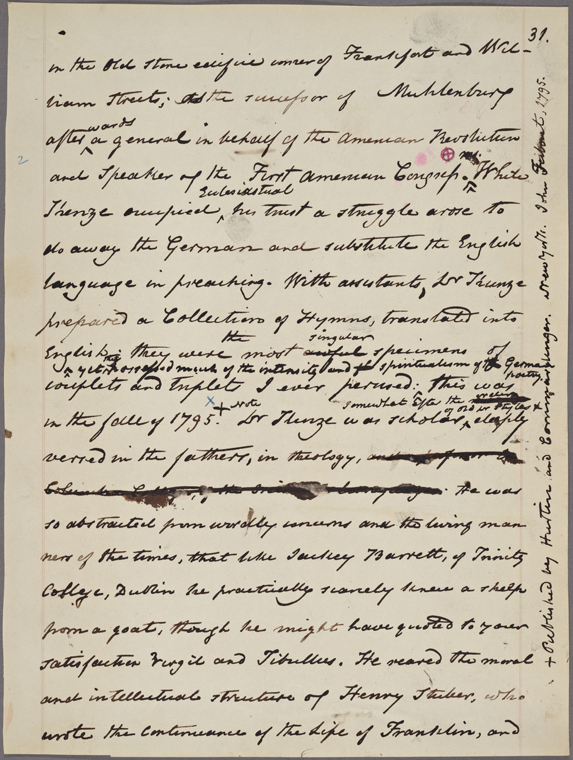 31.
in the Old stone edifice corner of Frankfort and Wil-
liam Streets; the successor of Muhlenburg
afterwards a general in behalf of the American Revolution
and Speaker of the First American Congress. While
Ecclesiastical
Kunze occupied his trust a struggle arose to
do away the German and substitute the English
language in preaching. With assistants, Dr Kunze
prepared a Collection of Hymns, translated into
the singular
English; they were most awful specimens of
yet possessed much of the intensity and spiritualism of German poetry
couplets and triplets I ever perused: this was
Note somewhat after the
of old Dr Styles +
in the fall of 1795. + Dr Kunze was scholar, deeply
versed in the fathers, in theology,
He was
so abstracted from worldly concerns and the living man
ners of the times, that like Jackey Barrett, of Trinity
College, Dublin he practically scarcely knew a sheep
from a goat, though he might have quoted to your
satisfaction Virgil and Tibullus. He reared the moral
and intellectual structure of Henry Stuber, who
wrote the continuance of the Life of Franklin, and
+ Published by Hurtin and Commardinger. New York. John Tiebout, 1795.
2